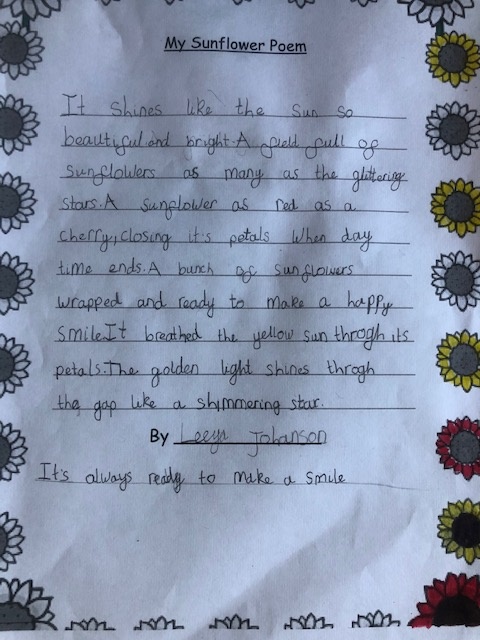 My Sunflower Poem
It shines like the sun so
beautiful and bright.A field full of
sunflowers as many as the glittering
stars.A sunflower as red as a
cherry,closing it's petals when day
time ends.A bunch of sunflowers
wrapped and ready to make a happy
smile.It breathed the yellow sun throgh its
petals.The golden light shines throgh
the gap like a shimmering star.
By Leeya Johanson
It's always ready to make a smile